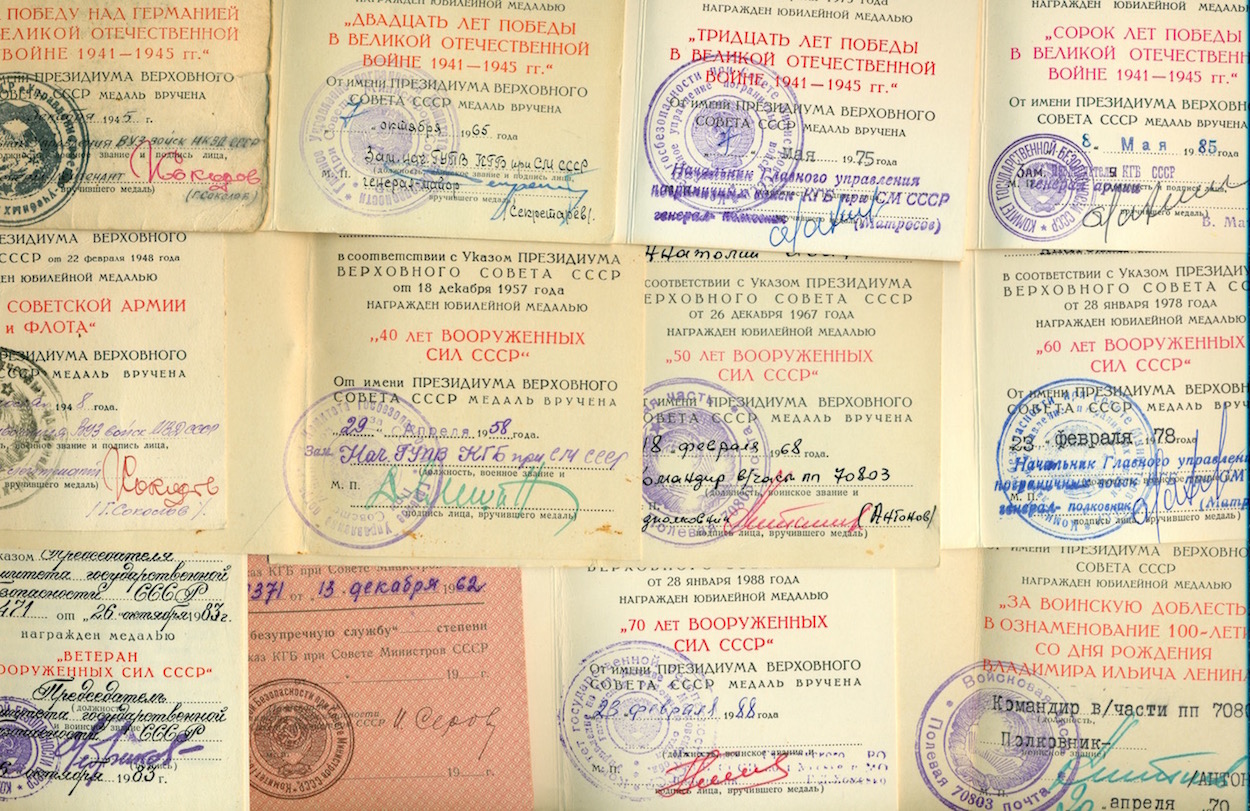 ПОБЕДУ НАД ГЕРМАНИЕЙ
ВЕЛИКОЙ ОТЕЧЕСТВЕННОЙ
ВОЙНЕ 1941—1945 гг.“
имени ПРЕЗИДИУМА ВЕРХОВНОГО
СОВЕТА СССР МЕДАЛЬ ВРУЧЕНА
1945. г.
ВУЗ войск НКВД СССР
воинское звание и подпись лица,
вручившего медаль)
(Г. Соколов)
НАГРАЖДЕН ЮБИЛЕЙНОЙ МЕДАЛЬЮ
„ДВАДЦАТЬ ЛЕТ ПОБЕДЫ
В ВЕЛИКОЙ ОТЕЧЕСТВЕННОЙ
ВОЙНЕ 1941—1945 гг.“
От имени ПРЕЗИДИУМА ВЕРХОВНОГО
СОВЕТА СССР МЕДАЛЬ ВРУЧЕНА
октября 1965 года
Зам. нач. ГУПВ КГБ при СМ СССР
М. П. (должность, воинское звание и подпись лица,
генерал-майор
вручившего медаль)
(Секретарев).
НАГРАЖДЕН ЮБИЛЕЙНОЙ МЕДАЛЬЮ
„ТРИДЦАТЬ ЛЕТ ПОБЕДЫ
В ВЕЛИКОЙ ОТЕЧЕСТВЕННОЙ
ВОЙНЕ 1941—1945 гг.“
От имени ПРЕЗИДИУМА ВЕРХОВНОГО
СОВЕТА СССР МЕДАЛЬ ВРУЧЕНА
мая 1975 года
Начальник Главного управления
пограничных войск КГБ при СМ СССР
генерал-полковник (Матросов)
НАГРАЖДЕН ЮБИЛЕЙНОЙ МЕДАЛЬЮ
„СОРОК ЛЕТ ПОБЕДЫ
В ВЕЛИКОЙ ОТЕЧЕСТВЕННОЙ
ВОЙНЕ 1941—1945 гг.“
От имени ПРЕЗИДИУМА ВЕРХОВНОГО
СОВЕТА СССР МЕДАЛЬ ВРУЧЕНА
8. Мая 1985. года
ЗАМ. Председателя КГБ СССР
М. П.
генерал армии
вручившего медаль)
КОМИТЕТ ГОСУДАРСТВЕННОЙ БЕЗОПАСНОСТИ СССР
ПРЕЗИДИУМА ВЕРХОВНОГО
СССР от 22 февраля 1948 года
ЮБИЛЕЙНОЙ МЕДАЛЬЮ
СОВЕТСКОЙ АРМИИ
и ФЛОТА“
ПРЕЗИДИУМА ВЕРХОВНОГО
СССР МЕДАЛЬ ВРУЧЕНА
1948. года.
ВУЗ войск МВД СССР
военное звание и подпись лица,
вручившего медаль)
/Г. Соколов/.
в соответствии с Указом ПРЕЗИДИУМА
ВЕРХОВНОГО СОВЕТА СССР
от 18 декабря 1957 года
НАГРАЖДЕН ЮБИЛЕЙНОЙ МЕДАЛЬЮ
„40 ЛЕТ ВООРУЖЕННЫХ
СИЛ СССР“
От имени ПРЕЗИДИУМА ВЕРХОВНОГО
СОВЕТА СССР МЕДАЛЬ ВРУЧЕНА
„29“ Апреля 1958 года.
Зам. Нач. ГУПВ КГБ при СМ СССР
(должность, военное звание и
М. П.
подпись лица, вручившего медаль)
Анатолий
В СООТВЕТСТВИИ с Указом ПРЕЗИДИУМА
ВЕРХОВНОГО СОВЕТА СССР
ОТ 26 ДЕКАБРЯ 1967 ГОДА
НАГРАЖДЕН ЮБИЛЕЙНОЙ МЕДАЛЬЮ
„50 ЛЕТ ВООРУЖЕННЫХ
СИЛ СССР“
От имени ПРЕЗИДИУМА ВЕРХОВНОГО
СОВЕТА СССР МЕДАЛЬ ВРУЧЕНА
18. февраля 1968 года
командир в/части пп 70803
(должность, воинское звание и
подполковник (АНТОНОВ)
(подпись лица, вручившего медаль)
в соответствии с Указом ПРЕЗИДИУМА
ВЕРХОВНОГО СОВЕТА СССР
ОТ 28 ЯНВАРЯ 1978 ГОДА
НАГРАЖДЕН ЮБИЛЕЙНОЙ МЕДАЛЬЮ
„60 ЛЕТ ВООРУЖЕННЫХ
СИЛ СССР“
От имени ПРЕЗИДИУМА ВЕРХОВНОГО
СОВЕТА СССР МЕДАЛЬ ВРУЧЕНА
23 февраля 1978 года
Начальник Главного управления
пограничных войск при СМ
М. П.
генерал-полковник
подпись лица, вручившего медаль)
указом Председателя
Комитета государственной
безопасности СССР
471 от „26 октября 1983г.
награжден медалью
„ВЕТЕРАН
ВООРУЖЕННЫХ СИЛ СССР“
Председатель
(должность,
Комитета государственной
воинское звание
безопасности СССР
(подпись)
октября 1983 г.
каз КГБ при Совете Министров
371 от „13. декабря 1962
безупречную службу“ степени
каз КГБ при Совете Министров СССР
19 г.
И Серов
19 г.
ВЕРХОВНОГО СОВЕТА СССР
ОТ 28 ЯНВАРЯ 1988 ГОДА
НАГРАЖДЕН ЮБИЛЕЙНОЙ МЕДАЛЬЮ
„70 ЛЕТ ВООРУЖЕННЫХ
СИЛ СССР“
От имени ПРЕЗИДИУМА ВЕРХОВНОГО
СОВЕТА СССР МЕДАЛЬ ВРУЧЕНА
23 февраля 1988 года
(должность, воинское звание и
М. П.
подпись лица, вручившего медаль)
От имени ПРЕЗИДИУМА ВЕРХОВНОГО
СОВЕТА СССР
НАГРАЖДЕН ЮБИЛЕЙНОЙ МЕДАЛЬЮ
„ЗА ВОИНСКУЮ ДОБЛЕСТЬ
В ОЗНАМЕНОВАНИЕ 100-ЛЕТИЯ
СО ДНЯ РОЖДЕНИЯ
ВЛАДИМИРА ИЛЬИЧА ЛЕНИНА
Командир в/части пп 70803
(должность,
Полковник-
воинское звание)
/АНТОН
М. П.
апреля 70
Войсковая часть
Полевая почта 70803